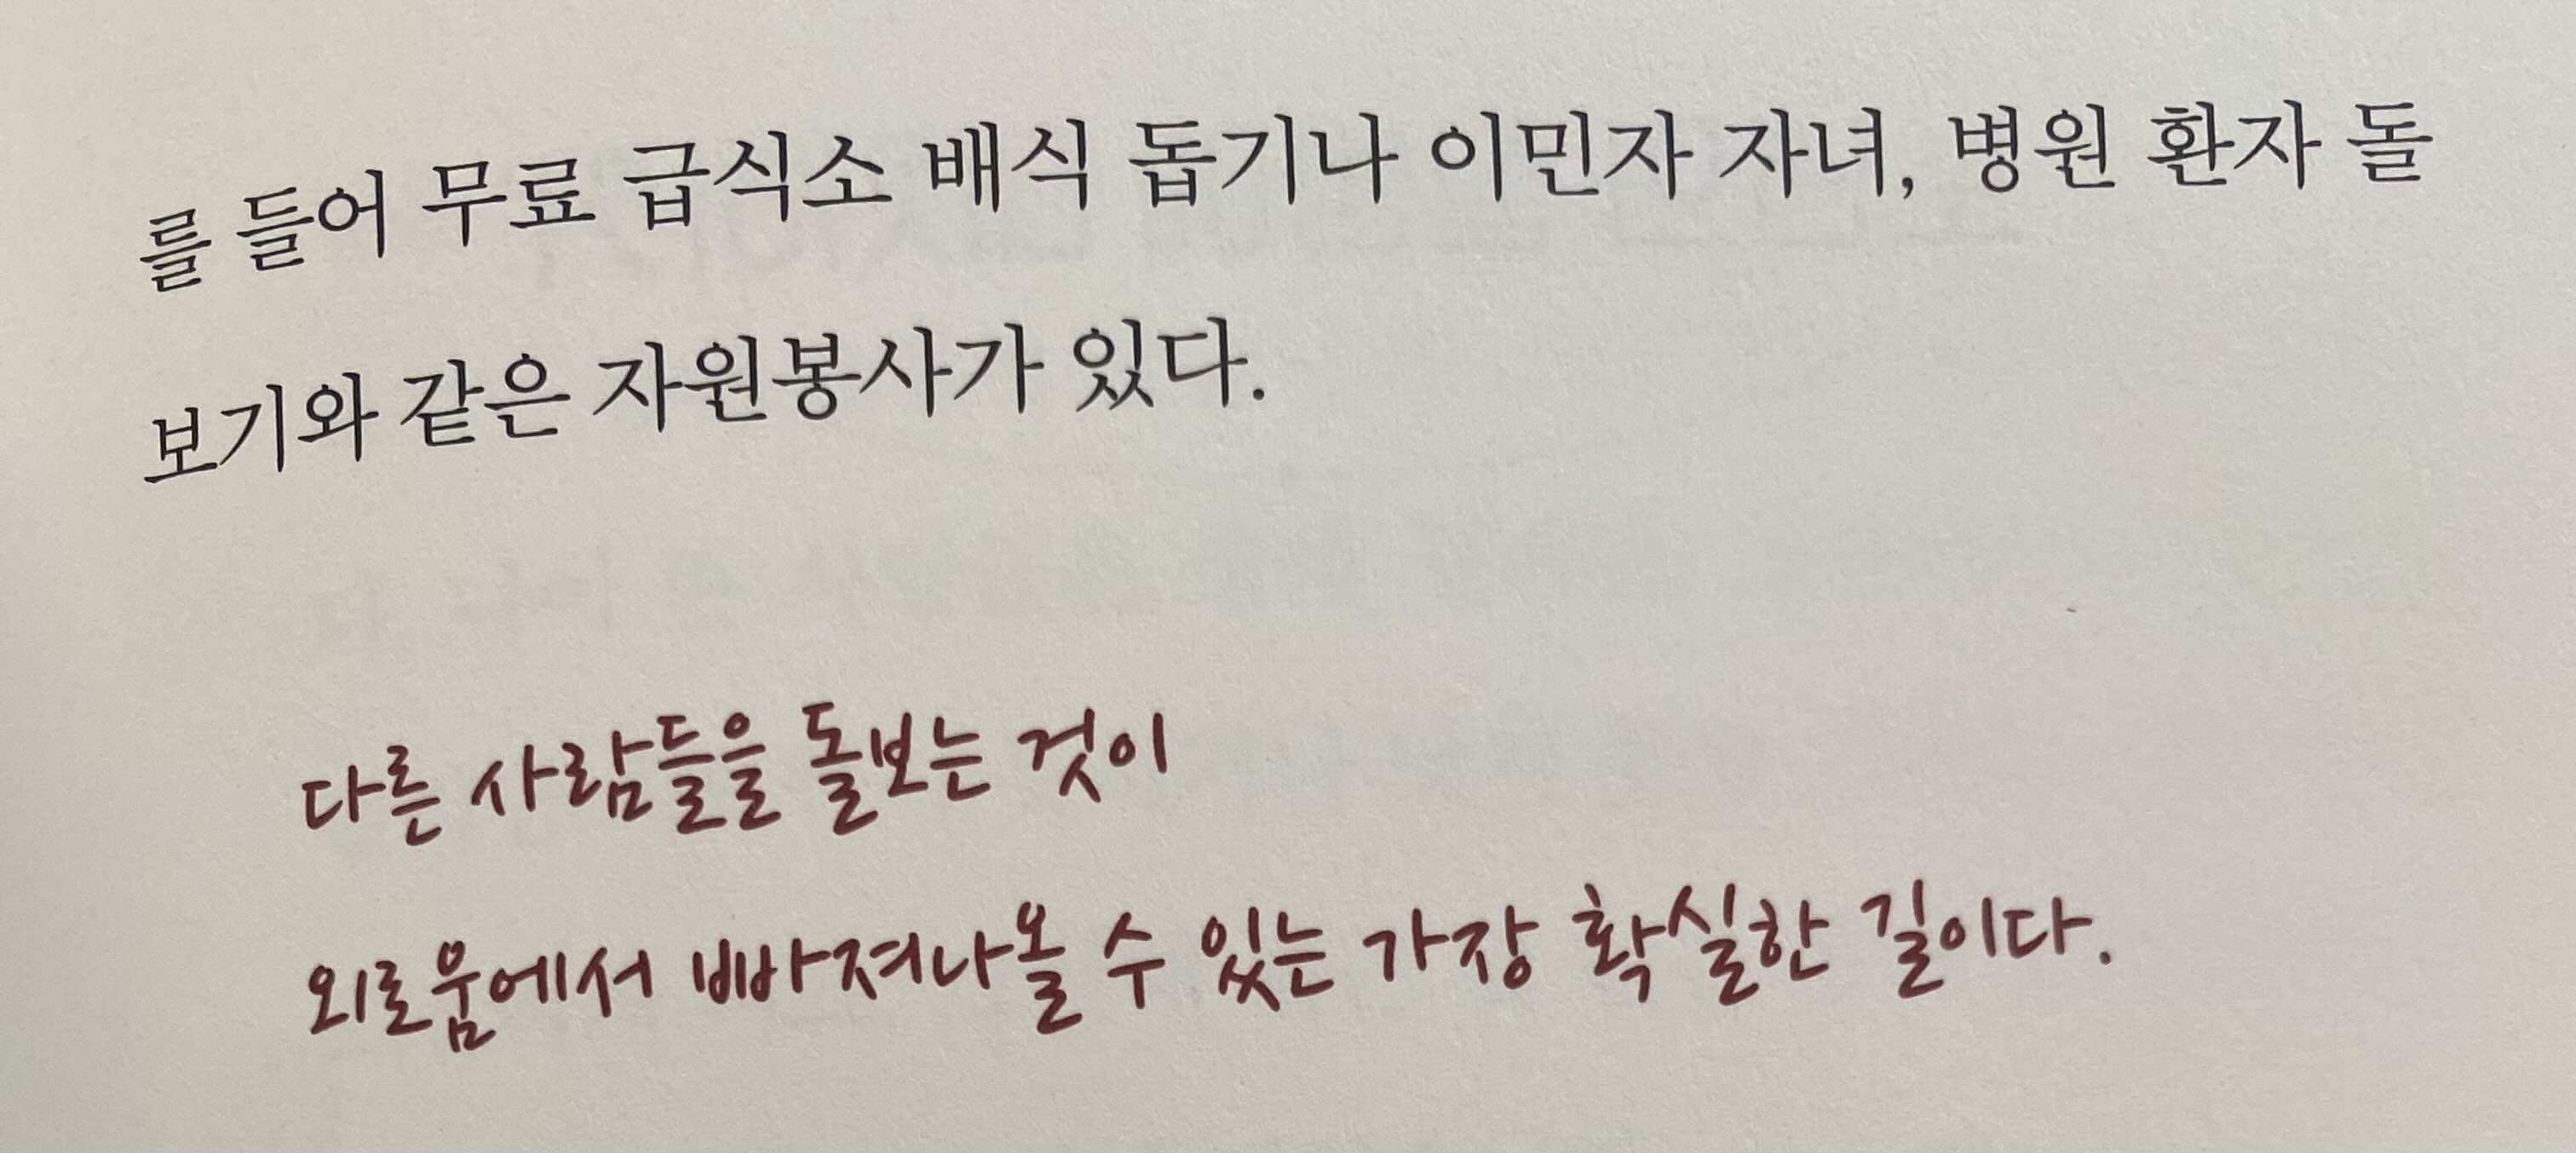 를 들어 무료 급식소 배식 돕기나 이민자 자녀, 병원 환자 돌
보기와 같은 자원봉사가 있다.
다른 사람들을 돌보는 것이
외로움에서 빠져나올 수 있는 가장 확실한 길이다.